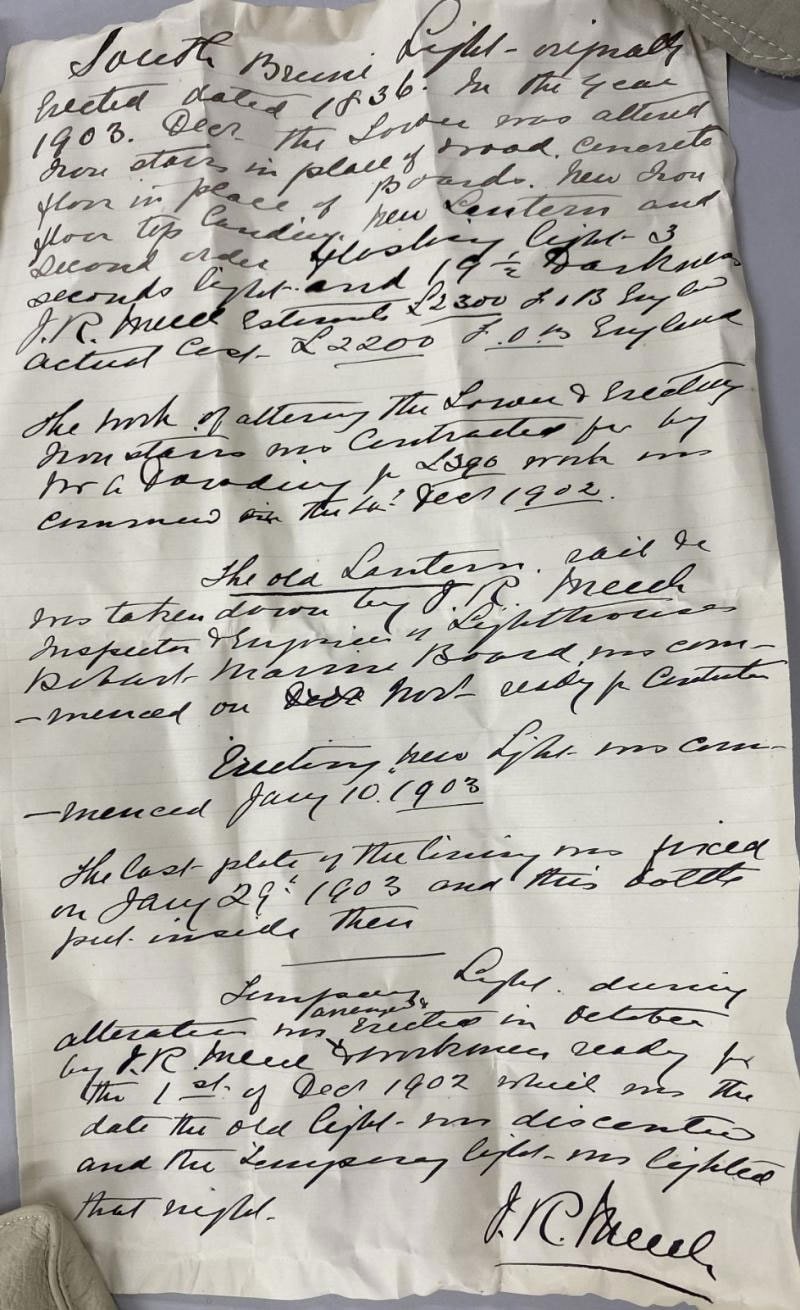 South Bruni Light - originally
Erected dated 1836. In the Year
1903. Decr the Tower was altered
Iron stairs in place of wood. concrete
floor in place of Boards. New Iron
floor top landing. new Lantern and
second order flashing light - 3
seconds light. and 19 ½ Darkness
J.R. Meech Estimate £2300 F.O.B England
actual Cost - £2200 F.O.B England
The work of altering the Tower & Erecting
Iron stairs was Contracted for by
for £390 work was
in the Decr 1902.
The old Lantern
was taken down by J R Meech
Inspector & Engineer of Lighthouses
Hobart Marine Board was com-
-menced on Novr ready for
Erecting new Light was com-
-menced Jany 10. 1903
The last plate of the lining was fixed
on Jany 29th 1903 and this bottle
put inside then
Tempory Light. during
alteration was arranged & Erected in October
by J.R. Meech & workmen ready for
the 1st. of Decr 1902 which was the
date the old light - was
and the Tempory light - was lighted
that night.
J.R. Meech